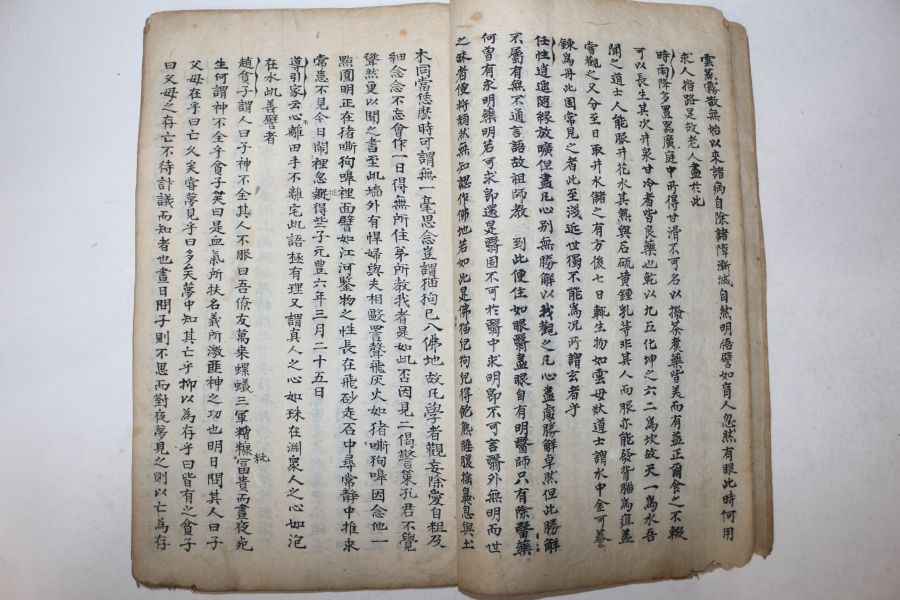 雲蒸霧散無始以來諸病自除諸障漸滅自然明悟譬如盲人忽然有眼此時何用
求人指路是故老人盡於此
時雨降多置器廣庭中所得甘滑不可名以撥茶煑藥皆美而有益正爾食之不輟
可以長生其次井泉甘冷者皆良藥也乾以九五化坤之六二爲坎故天一爲水吾
聞之道士人能服井花水其熱與石硫黃鍾乳等非其人而服亦能發背腦爲疽盖
嘗觀之又分至日取井水儲之有方後七日輒生物如雲母狀道士謂水中金可養
鍊爲丹此固常見之者此至淺近世獨不能爲况所謂玄者乎
任性逍遙隨緣放曠但盡凡心別無勝解以我觀之凡心盡處勝解卓然但此勝解
不屬有無不通言語故祖師教 到此便住如眼翳盡眼自有明醫師只有除翳藥
何曾有求明藥明若可求卽還是翳固不可於翳中求明卽不可言翳外無明而世
之昧者便將頹然無知認作佛地若如此是佛猫兒狗兒得飽熟睡腹搖鼻息與土
木同當恁麽時可謂無一毫思念豈謂猫狗已入佛地故凡學者觀妄除愛自粗及
細念念不忘會作一日得無所住弟所教我者是如此否因見二偈警策孔君不覺
聳然更以聞之書至此墻外有悍婦與夫相毆詈聲飛灰火如猪嘶狗嘷因念他一
點圓明正在猪嘶狗嘷裡面譬如江河鑒物之性長在飛砂走石中尋常靜中推求
常患不見今日鬧裡忽捉得些子元豊六年三月二十五日
道引家云心不離田手不離宅此語極有理又謂眞人之心如珠在淵衆人之心如泡
在水此善譬者
趙貧子謂人曰子神不全其人不服曰吾僚友萬乘螻蟻三軍糟糠富貴而晝夜死
生何謂神不全乎貧子笑曰是血氣所扶名義所激匪神之功也明日問其人曰子
父母在乎曰亡久矣嘗夢見乎曰多矣夢中知其亡乎抑以爲存乎曰皆有之貧子
曰父母之存亡不待計議而知者也晝日問子則不思而對夜夢見之則以亡爲存